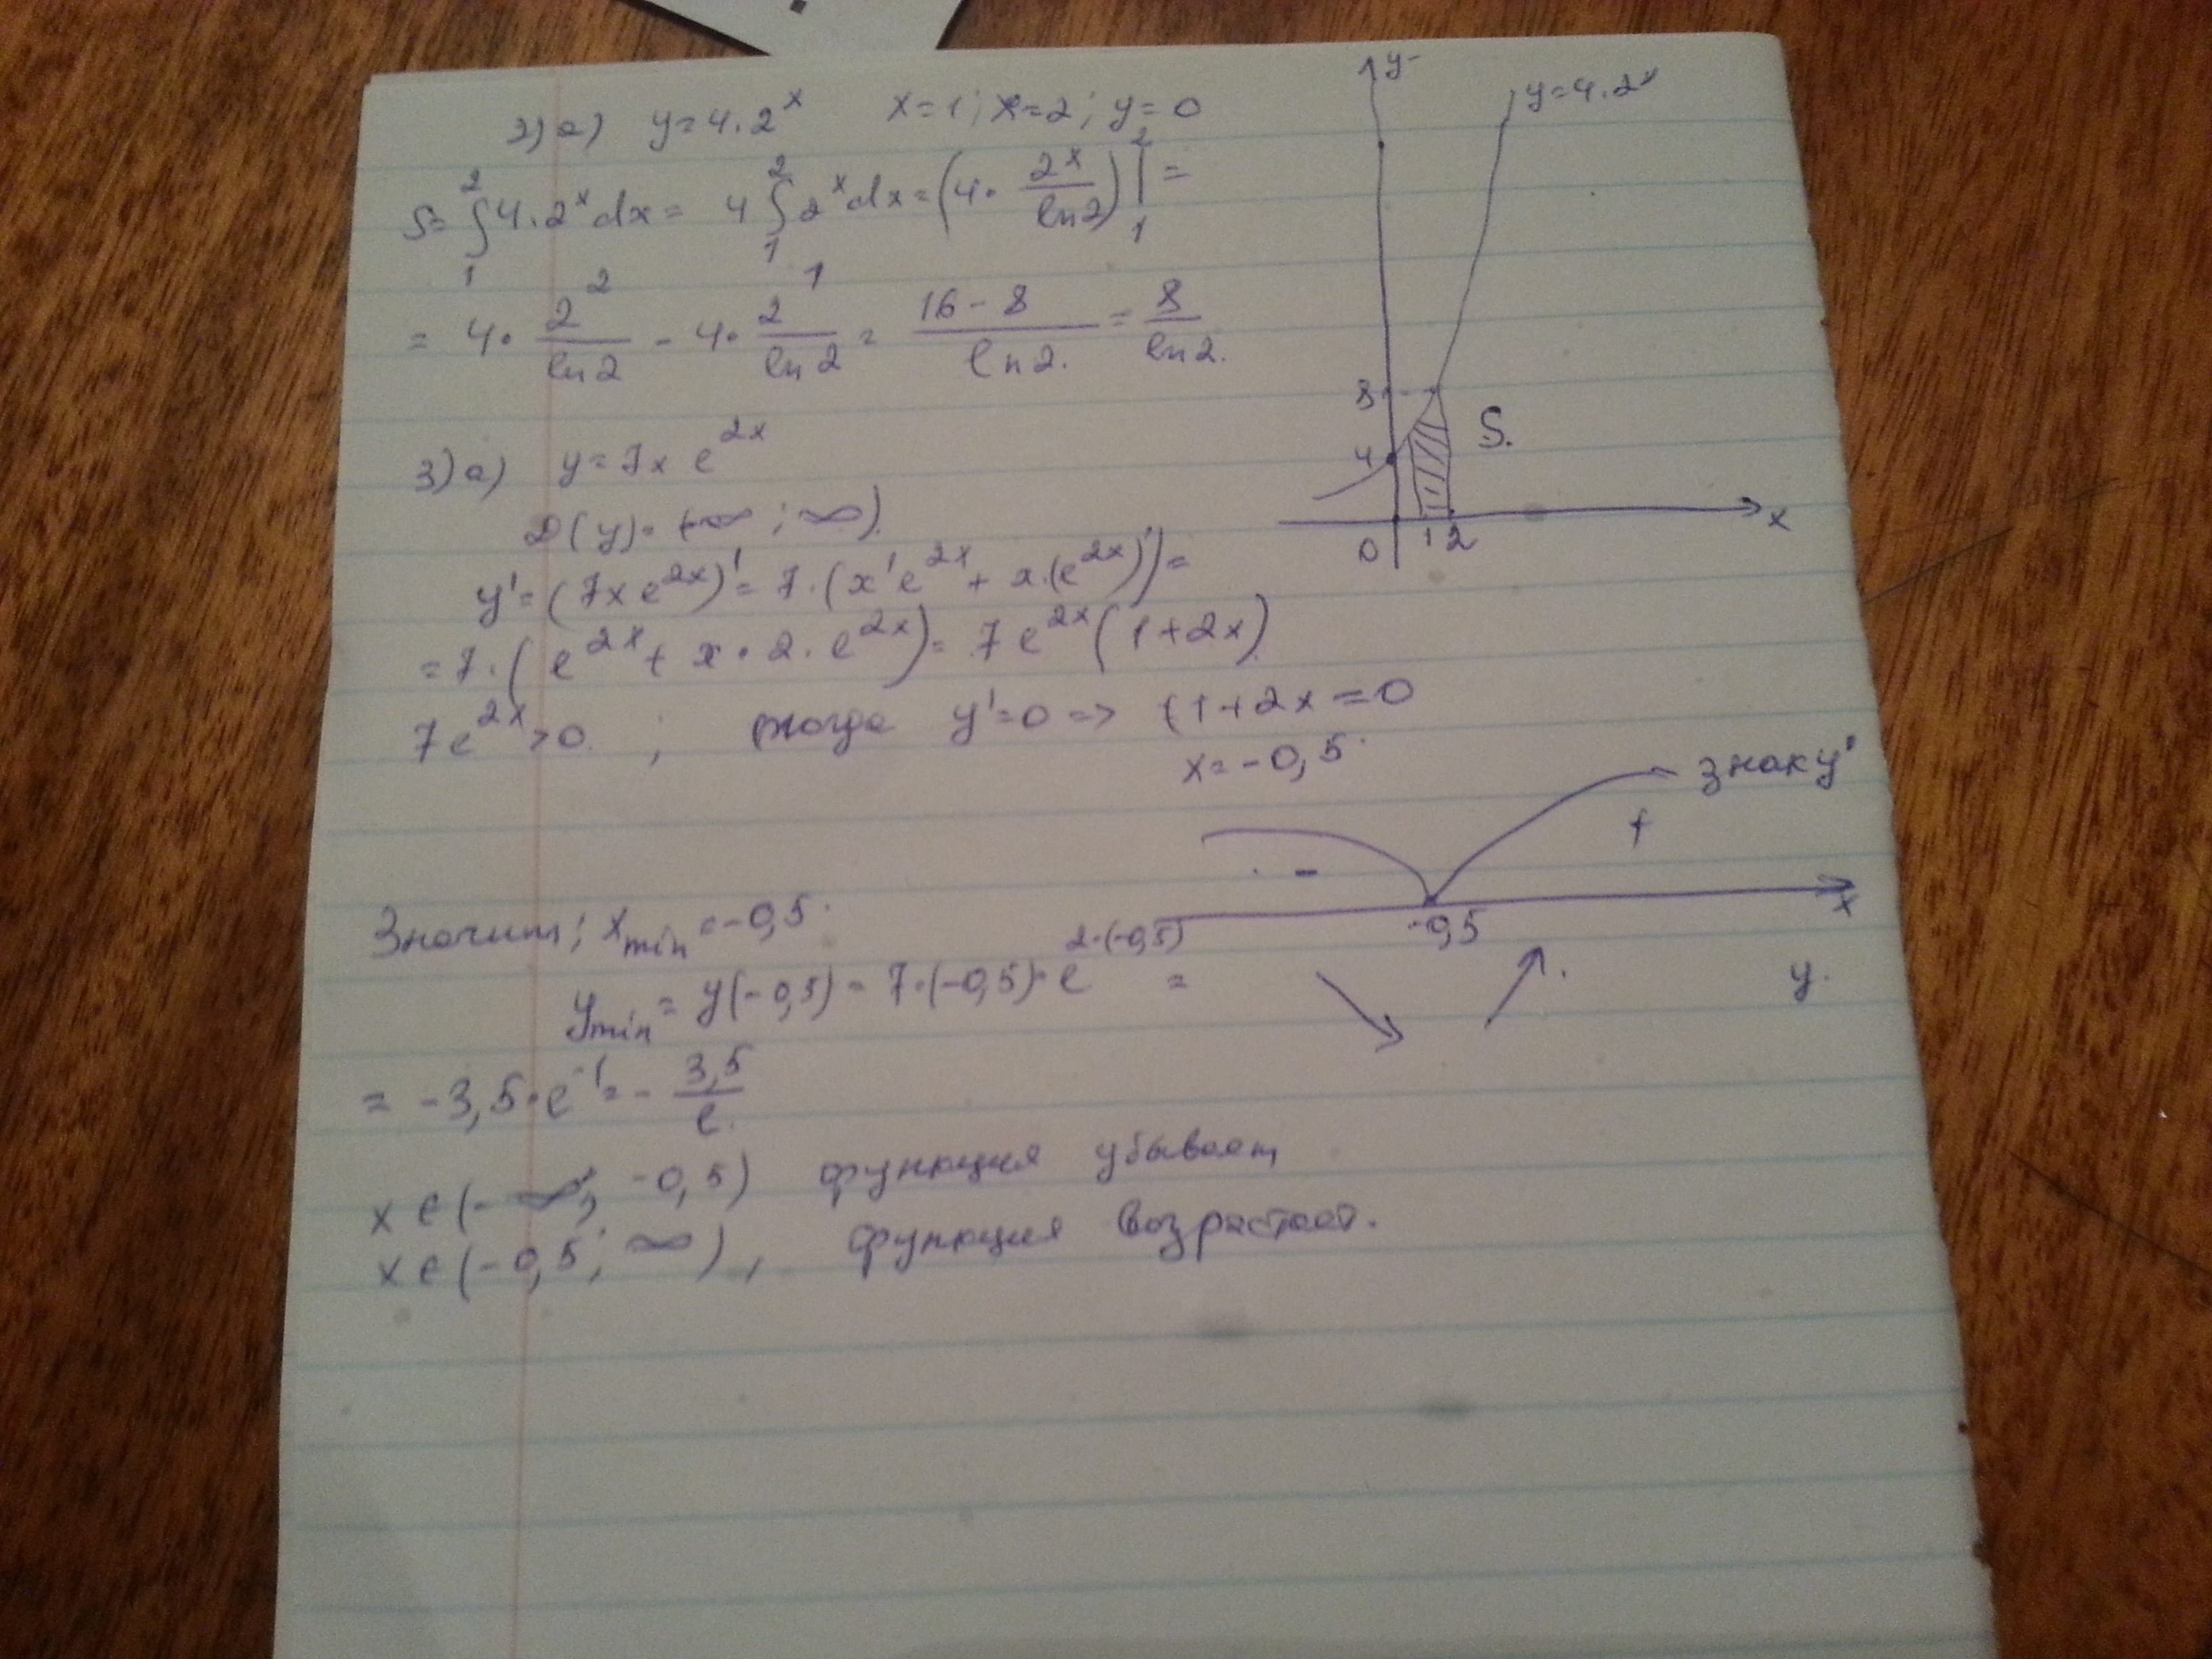 2) а) y=4·2^x x=1; x=2; y=0
S=∫₁²4·2^x dx= 4∫₁²2^x dx=(4·2^x/ln2)|₁²=
= 4·2²/ln2 - 4·2¹/ln2 = (16-8)/ln2. = 8/ln2.
y
y=4·2^x
8
4
S.
0 1 2 x
3) а) y=7x e^(2x)
D(y)=(-∞;∞).
y'=(7xe^(2x))'=7·(x'e^(2x)+x·(e^(2x))')=
=7·(e^(2x)+x·2·e^(2x))=7e^(2x)(1+2x)
7e^(2x)>0 ; тогда y'=0=> (1+2x=0
x=-0,5.
знак y'
- +
-0,5 x
y.
Значит; x_min=-0,5.
y_min=y(-0,5)=7·(-0,5)·e^(2·(-0,5)) =
= -3,5·e^(-1)=-3,5/e.
x∈(-∞; -0,5) функция убывает
x∈(-0,5; ∞), функция возрастает.